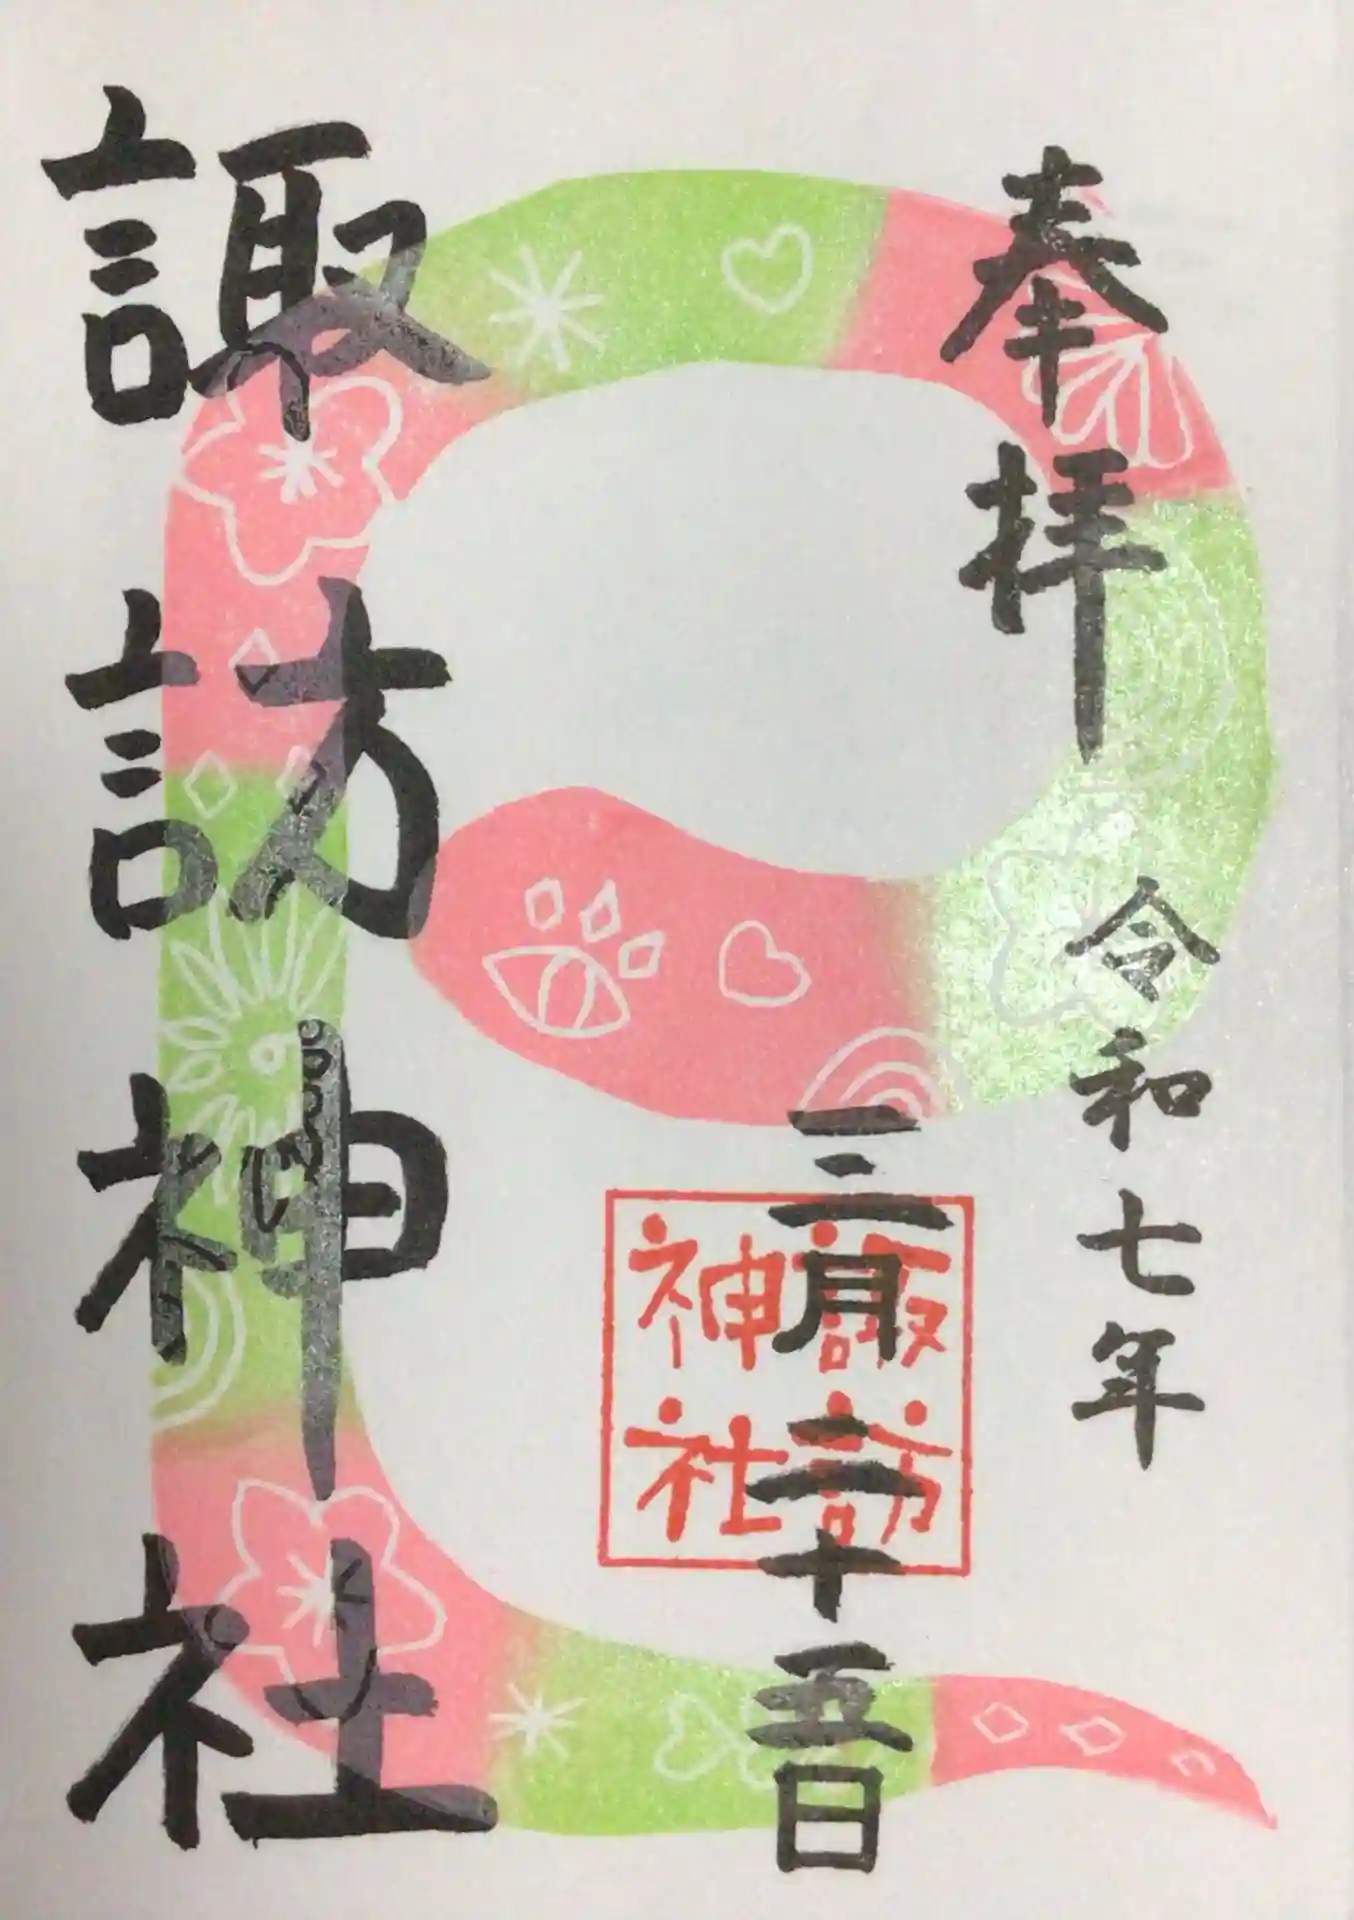 奉拝
令和七年
三月二十五日
諏訪
神社
諏訪神社